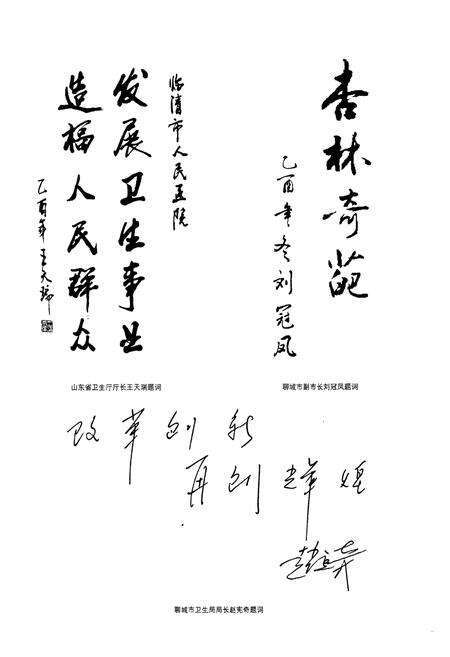 临清市人民医院
发展卫生事业
造福人民群众
乙酉年王天瑞
山东省卫生厅厅长王天瑞题词
杏林奇葩
乙酉年冬刘冠凤
聊城市副市长刘冠凤题词
改革创新
再创辉煌
赵宪奇
聊城市卫生局局长赵宪奇题词